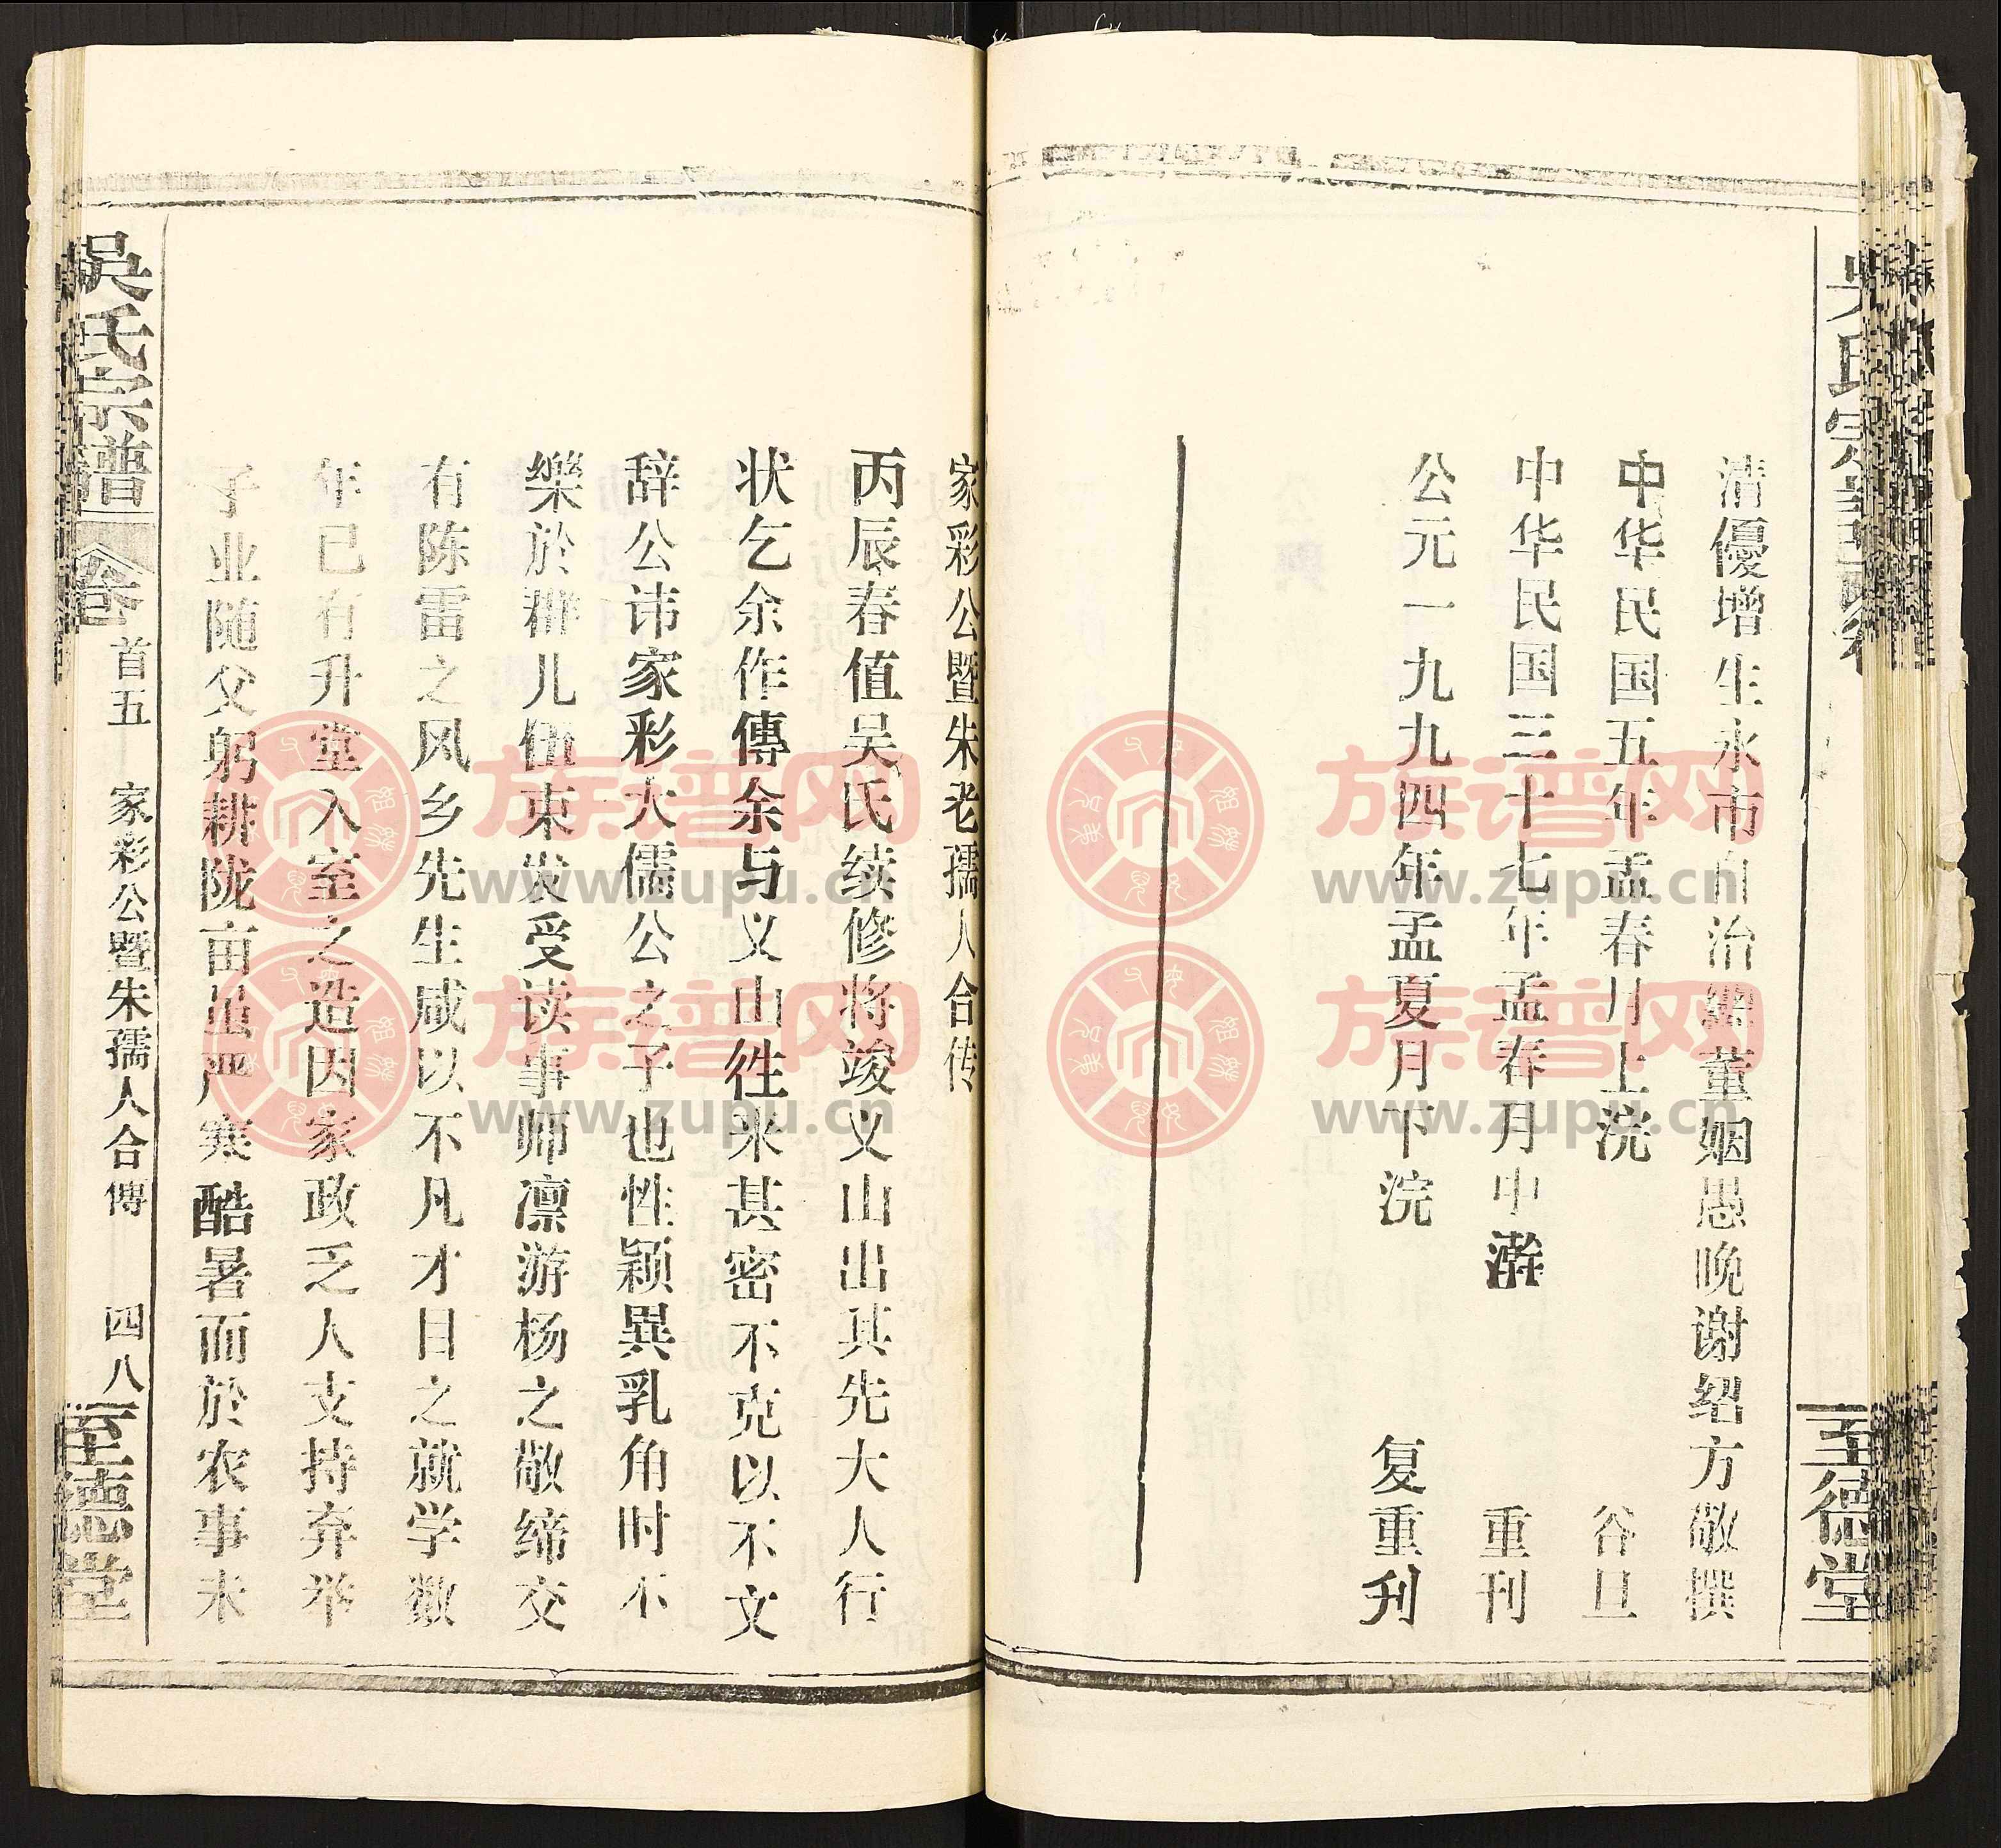 清優增生永市自治總董姻愚晚谢绍方敬撰
中华民国五年孟春月上浣 谷旦
中华民国三十七年孟春月中澣 重刊
公元一九九四年孟夏月下浣 复重刊
至德堂
家彩公暨朱老孺人合传
丙辰春值吴氏续修将竣义山出其先大人行
状乞余作傳余与义山徃来甚密不克以不文
辞公讳家彩大儒公之子也性颖異乳角时不
樂於群儿伍束发受读事师凛游杨之敬缔交
有陈雷之风乡先生咸以不凡才目之就学数
年已有升堂入室之造因家政乏人支持弃举
子业随父躬耕陇亩虽严寒酷暑而於农事未
吴氏宗譜 卷首五 家彩公暨朱孺人合傳 四八 至德堂
族谱网
www.zupu.cn
族谱网
www.zupu.cn
族谱网
www.zupu.cn
族谱网
www.zupu.cn